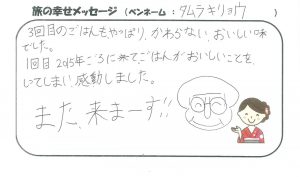 旅の幸せメッセージ (ペンネーム：タムラキリョウ)
3回目のごはんもやっぱり、かわらない、おいしい味
でした。
1回目2015年ごろに来てごはんがおいしいことを、
してしまい感動しました。
また、来まーす!!